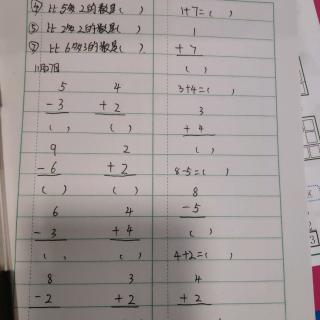 ④ 比5多2的数是( )
⑤ 比2多2的数是( )
比6多3的数是( )
11月7日
5 4
-3 +2
( ) ( )
9 2
-6 +2
( ) ( )
6 4
-3 +4
( ) ( )
8 3
-2 +2
1+7=( )
1
+7
( )
3+4=( )
3
+4
( )
8-5=( )
8
-5
( )
4+2=( )
4
+2